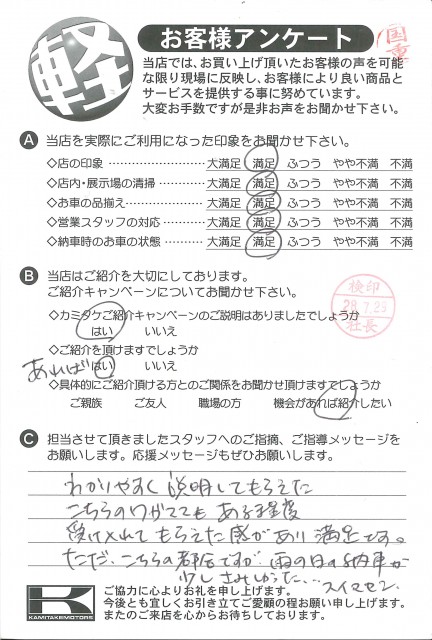 軽
お客様アンケート
国重
当店では、お買い上げ頂いたお客様の声を可能
な限り現場に反映し、お客様により良い商品と
サービスを提供する事に努めています。
大変お手数ですが是非お声をお聞かせ下さい。
A 当店を実際にご利用になった印象をお聞かせ下さい。
◇店の印象 …………………… 大満足 満足 ふつう やや不満 不満
◇店内・展示場の清掃 ………… 大満足 満足 ふつう やや不満 不満
◇お車の品揃え………………… 大満足 満足 ふつう やや不満 不満
◇営業スタッフの対応 ………… 大満足 満足 ふつう やや不満 不満
◇納車時のお車の状態 ………… 大満足 満足 ふつう やや不満 不満
B 当店はご紹介を大切にしております。
ご紹介キャンペーンについてお聞かせ下さい。
検印
28.7.23
社長
◇カミタケご紹介キャンペーンのご説明はありましたでしょうか
はい いいえ
◇ご紹介を頂けますでしょうか
あれば はい いいえ
◇具体的にご紹介頂ける方とのご関係をお聞かせ頂けますでしょうか
ご親族 ご友人 職場の方 機会があれば紹介したい
C 担当させて頂きましたスタッフへのご指摘、ご指導メッセージを
お願いします。応援メッセージもぜひお願いします。
わかりやすく説明してもらえた
こちらのワガママもある程度
受け入れてもらえた感があり満足です。
ただ、こちらの都合ですが、雨の日の納車が
少しさみしかった… スイマセン
K
KAMITAKEMOTORS
ご協力に心よりお礼を申し上げます。
今後とも宜しくお引き立てご愛顧の程お願い申し上げます。
またのご来店を心からお待ちしております。